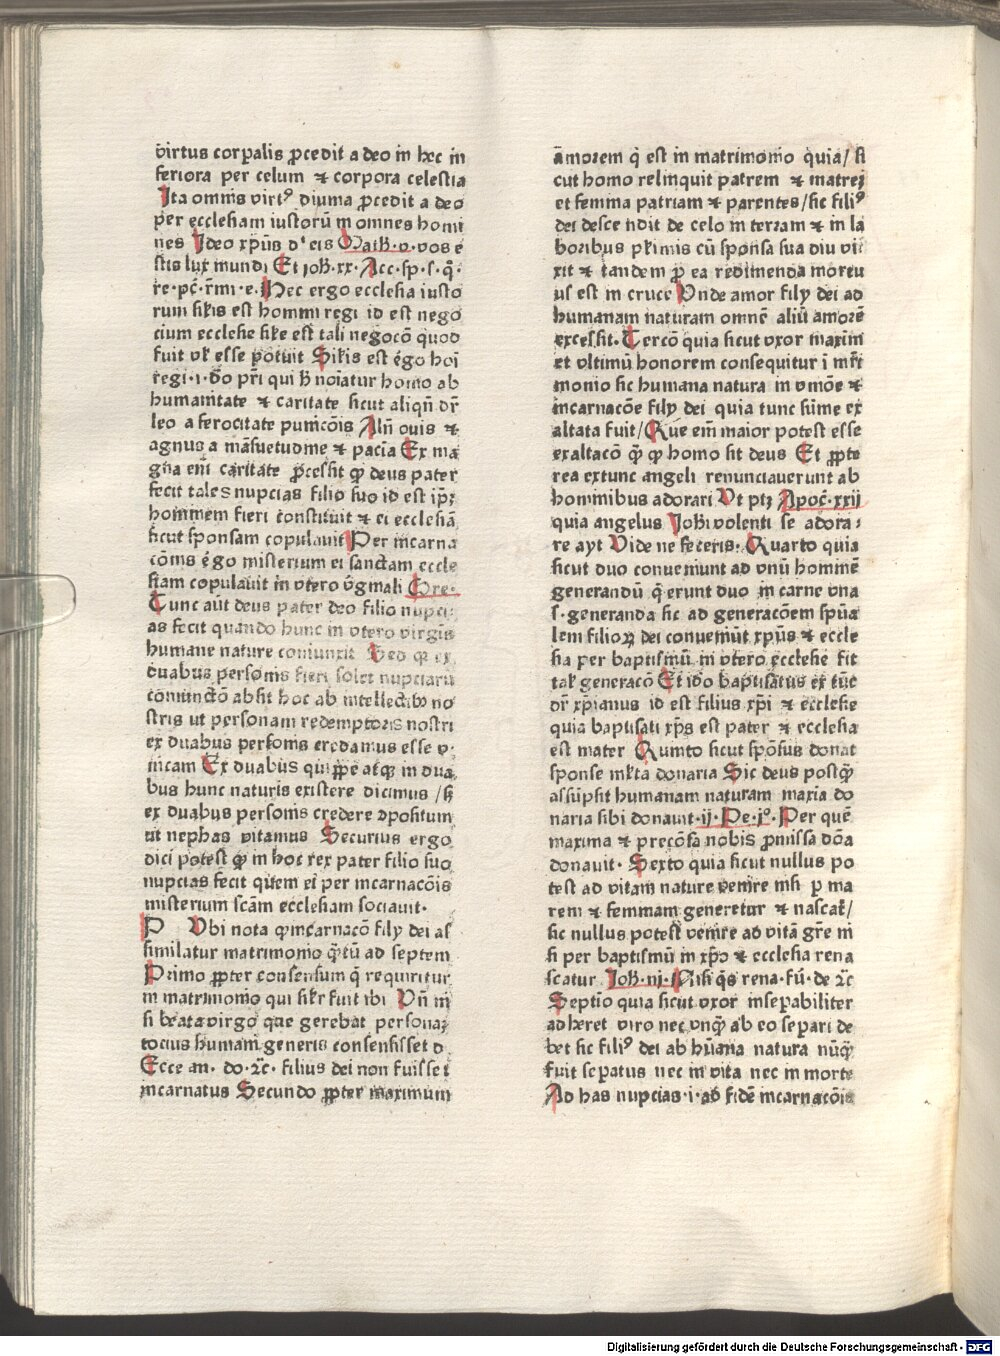 virtus corꝑalis ꝓcedit a deo in hec in
feriora per celum ⁊ corpora celestia
Ita omnis virtꝰ diuina ꝓcedit a deo
per ecclesiam iustorū in omnes homi
nes Ideo xp̄us dˡ eis Math·v·vos e
stis lux mundi Et joh̄·xx·Acc·sp·s·q̄·
re·pc̄·r̄mi·e·Hec ergo ecclesia iusto
rum sil̄is est homini regi id est nego
cium ecclesie sil̄e est tali negocō quod
fuit vl̄ esse potuit Sil̄is est ḡo hoī
regi·i·deo pr̄i qui h̄ noīatur homo ab
humanitate ⁊ caritate sicut aliqn̄ dr̄
leo a ferocitate punicōis Aln̄ ouis ⁊
agnus a māsuetudine ⁊ pacīa Ex ma
gna eni caritate ꝓcessit ꝙ deus pater
fecit tales nupcias filio suo id est ip̄ꝫ
hominem fieri constituit ⁊ ei ecclesiā
sicut sponsam copulauit Per incarna
cōnis ḡo misterium ei sanctam eccle
siam copulauit in vtero v̄gīnali Gre·
Tunc aūt deus pater deo filio nupci
as fecit quando hunc in vtero virginis
humane nature coniunxit Sed ꝙ ex
duabus personis fieri solet nupciarū
coniunctō absit hoc ab intellectibꝫ no
stris ut personam redemptoris nostri
ex duabus personis credamus esse v·
nicam Ex duabus quippe atqꝫ in dua
bus hunc naturis existere dicimus /sꝫ
ex duabus personis credere ꝯpositum
ut nephas vitamus Securius ergo
dici potest ꝙ in hoc rex pater filio suo
nupcias fecit q̄item ei per incarnacōis
misterium scām ecclesiam sociauit·
P Vbi nota ꝙ incarnacō fily dei as
similatur matrimonio q̄tū ad septem
Primo ꝓpter consensum q̄ requiritur
in matrimonio qui sil̄r fuit ibi Vn̄ ni
si beata virgo que gerebat personaꝫ
tocius humani generis consensisset d
Ecce an· do·⁊c· filius dei non fuisset
incarnatus Secundo ꝓpter maximum
āmorem q̄ est in matrimonio quia/ si
cut homo relinquit patrem ⁊ matreꝫ
et femina patriam ⁊ parentes/sic filiꝰ
dei descendit de celo in terram ⁊ in la
boribus plimis cū sponsa sua diu vi
xit ⁊ tandem ꝓ ea redimenda mortu
us est in cruce Vnde amor fily dei ad
humanam naturam omnē aliū amorē
excessit·Tercō quia sicut vxor maxim
et vltimū honorem consequitur ī mr̄i
monio sic humana natura in vniōe ⁊
incarnacōe fily dei quia tunc sūme ex
altata fuit/Que em̄ maior potest esse
exaltacō q̄ ꝙ homo fit deus Et ꝓpte
rea extunc angeli renunciauerunt ab
hominibus adorari Vt ptꝫ Apoc̄·xxij
quia angelus Joh̄i volenti se adora·
re ayt Vide ne feceris· Quarto quia
sicut duo conueniunt ad vnū hominē
generandū q̄ erunt duo in carne vna
s·generanda sic ad generacōem spūa
lem filioꝝ dei conueniūt xp̄us ⁊ eccle
sia per baptismū in vtero ecclesie fit
tal̄ generacō Et iđo baptisātus ex tūc
dr̄ xp̄ianus id est filius xp̄i ⁊ ecclesie
quia baptisati xp̄s est pater ⁊ ecclesia
est mater Quinto sicut spōsus donat
sponse ml̄ta donaria Sic deus postq̄
assūpsit humanam naturam maxīa do
naria sibi donauit·ij·Pe·jº·Per quē
maxima ⁊ preciōsa nobis ꝓmissa dōa
donauit· Sexto quia sicut nullus po
test ad vitam nature venire nisi ꝑ ma
rem ⁊ feminam generetur ⁊ nascat̄/
sic nullus potest venire ad vitā gr̄e ni
si per baptismū in xp̄o ⁊ ecclesia rena
scatur Joh̄·iij·Nisi q̄s rena·fū·de ⁊c̄
Septīo quia sicut vxor inseparabiliter
adheret viro nec vnq̄ ab eo separi de
bet sic filiꝰ dei ab hūana natura nūq̄
fuit sep̄atus nec in vita nec in morte
Ad has nupcias·i·ad fidē incarnacōis
Digitalisierung gefördert durch die Deutsche Forschungsgemeinschaft - DFG